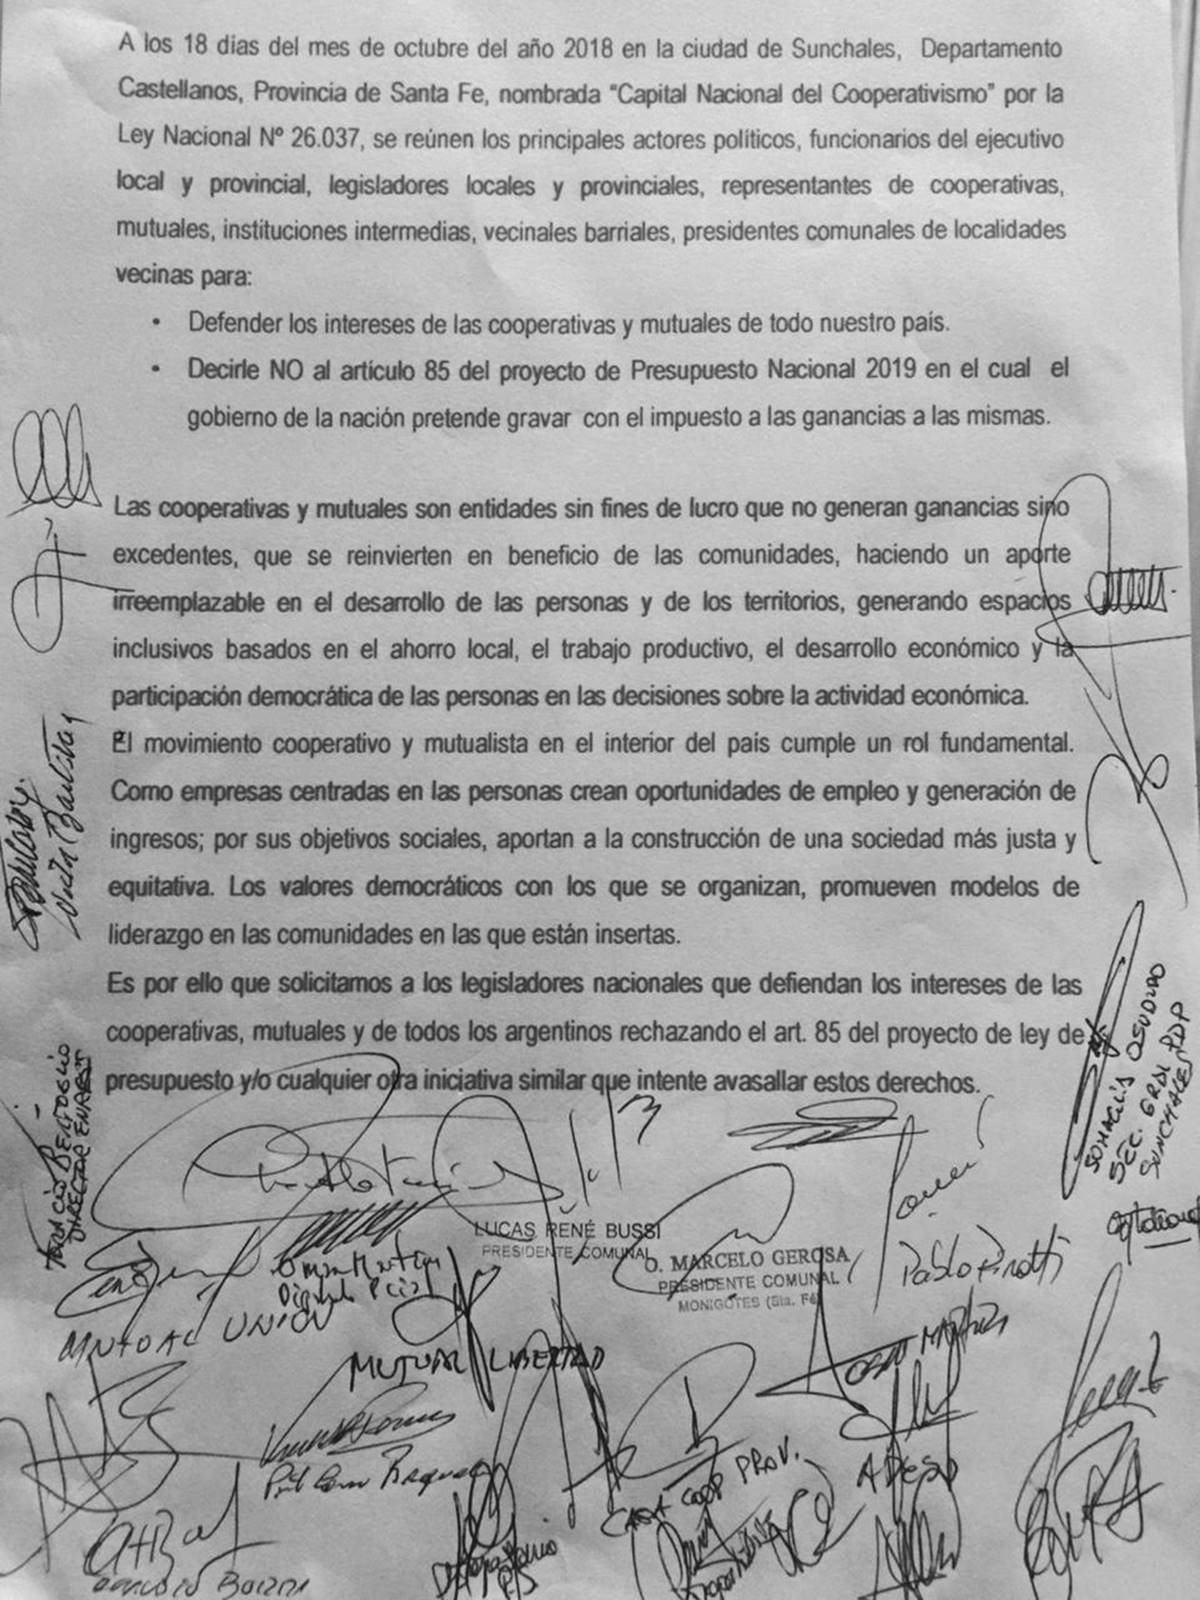 A los 18 dias del mes de octubre del año 2018 en la ciudad de Sunchales, Departamento
Castellanos, Provincia de Santa Fe, nombrada “Capital Nacional del Cooperativismo” por la
Ley Nacional Nº 26.037, se reúnen los principales actores políticos, funcionarios del ejecutivo
local y provincial, legisladores locales y provinciales, representantes de cooperativas,
mutuales, instituciones intermedias, vecinales barriales, presidentes comunales de localidades
vecinas para:
• Defender los intereses de las cooperativas y mutuales de todo nuestro país.
• Decirle NO al artículo 85 del proyecto de Presupuesto Nacional 2019 en el cual el
gobierno de la nación pretende gravar con el impuesto a las ganancias a las mismas.
Las cooperativas y mutuales son entidades sin fines de lucro que no generan ganancias sino
excedentes, que se reinvierten en beneficio de las comunidades, haciendo un aporte
irreemplazable en el desarrollo de las personas y de los territorios, generando espacios
inclusivos basados en el ahorro local, el trabajo productivo, el desarrollo económico y la
participación democrática de las personas en las decisiones sobre la actividad económica.
El movimiento cooperativo y mutualista en el interior del país cumple un rol fundamental.
Como empresas centradas en las personas crean oportunidades de empleo y generación de
ingresos; por sus objetivos sociales, aportan a la construcción de una sociedad más justa y
equitativa. Los valores democráticos con los que se organizan, promueven modelos de
liderazgo en las comunidades en las que están insertas.
Es por ello que solicitamos a los legisladores nacionales que defiendan los intereses de las
cooperativas, mutuales y de todos los argentinos rechazando el art. 85 del proyecto de ley de
presupuesto y/o cualquier otra iniciativa similar que intente avasallar estos derechos.
LUCAS RENÉ BUSSI
PRESIDENTE COMUNAL
O. MARCELO GEROSA
PRESIDENTE COMUNAL
MONIGOTES (Sta. Fé)
Pablo Pinotti
UNION
MUTUAL LIBERTAD
CASA COOP PROV.
SUNCHALES PDP